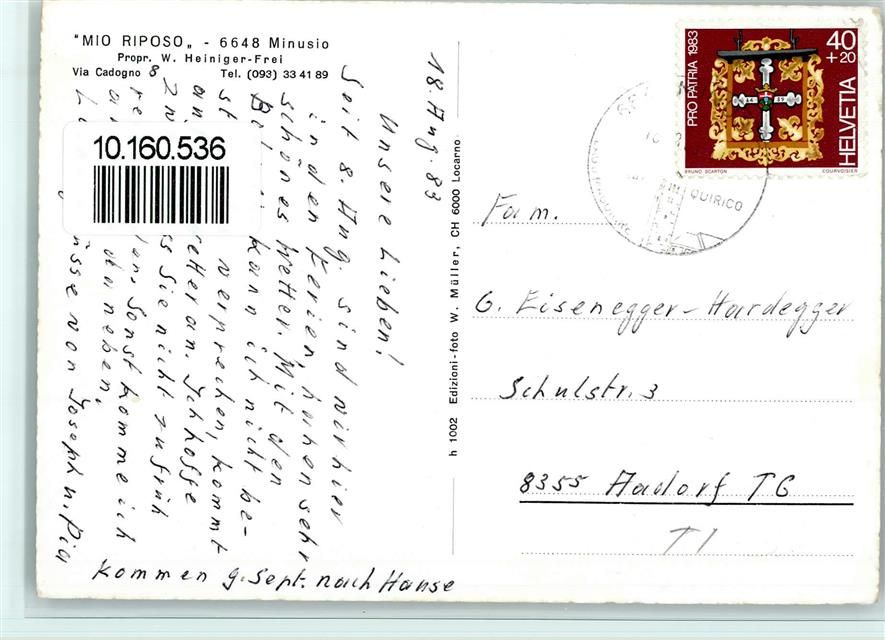 "MIO RIPOSO„ - 6648 Minusio
Propr. W. Heiniger-Frei
Via Cadogno 8 Tel. (093) 33 41 89
10.160.536
18. Aug. 83
Unsere Lieben!
Seit 8. Aug. sind wir hier
in den Ferien, haben sehr
schönes Wetter. Mit den
kann ich nicht be-
st versprechen, kommt
an. Ich hoffe
ss Sie nicht zu früh
sonst komme ich
daneben.
von Joseph u. Pia
kommen 9. Sept. nach Hause
h 1002 Edizioni-foto W. Müller, CH 6000 Locarno
PRO PATRIA 1983
40
+20
HELVETIA
BRUNO SCARTON
COURVOISIER
QUIRICO
Fam.
G. Eisenegger-Hardegger
Schulstr. 3
8355 Aadorf TG
TI